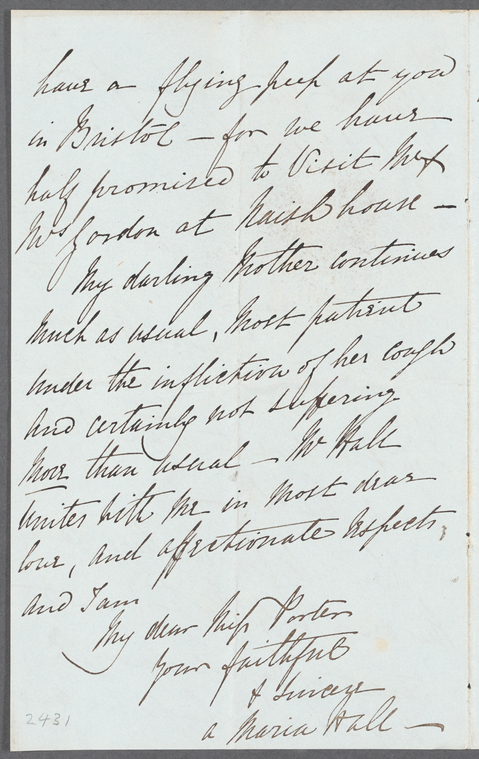 have a flying peep at you
in Bristol – for we have
half promised to Visit Mr &
Mrs Gordon at Naish house –
My darling Mother continues
much as usual, most patient
under the infliction of her cough
and certainly not suffering
more than usual – Mr Hall
unites with me in most dear
love, and affectionate respects,
and I am
My dear Miss Porter
your faithful
& sincere
a Maria Hall –
2431